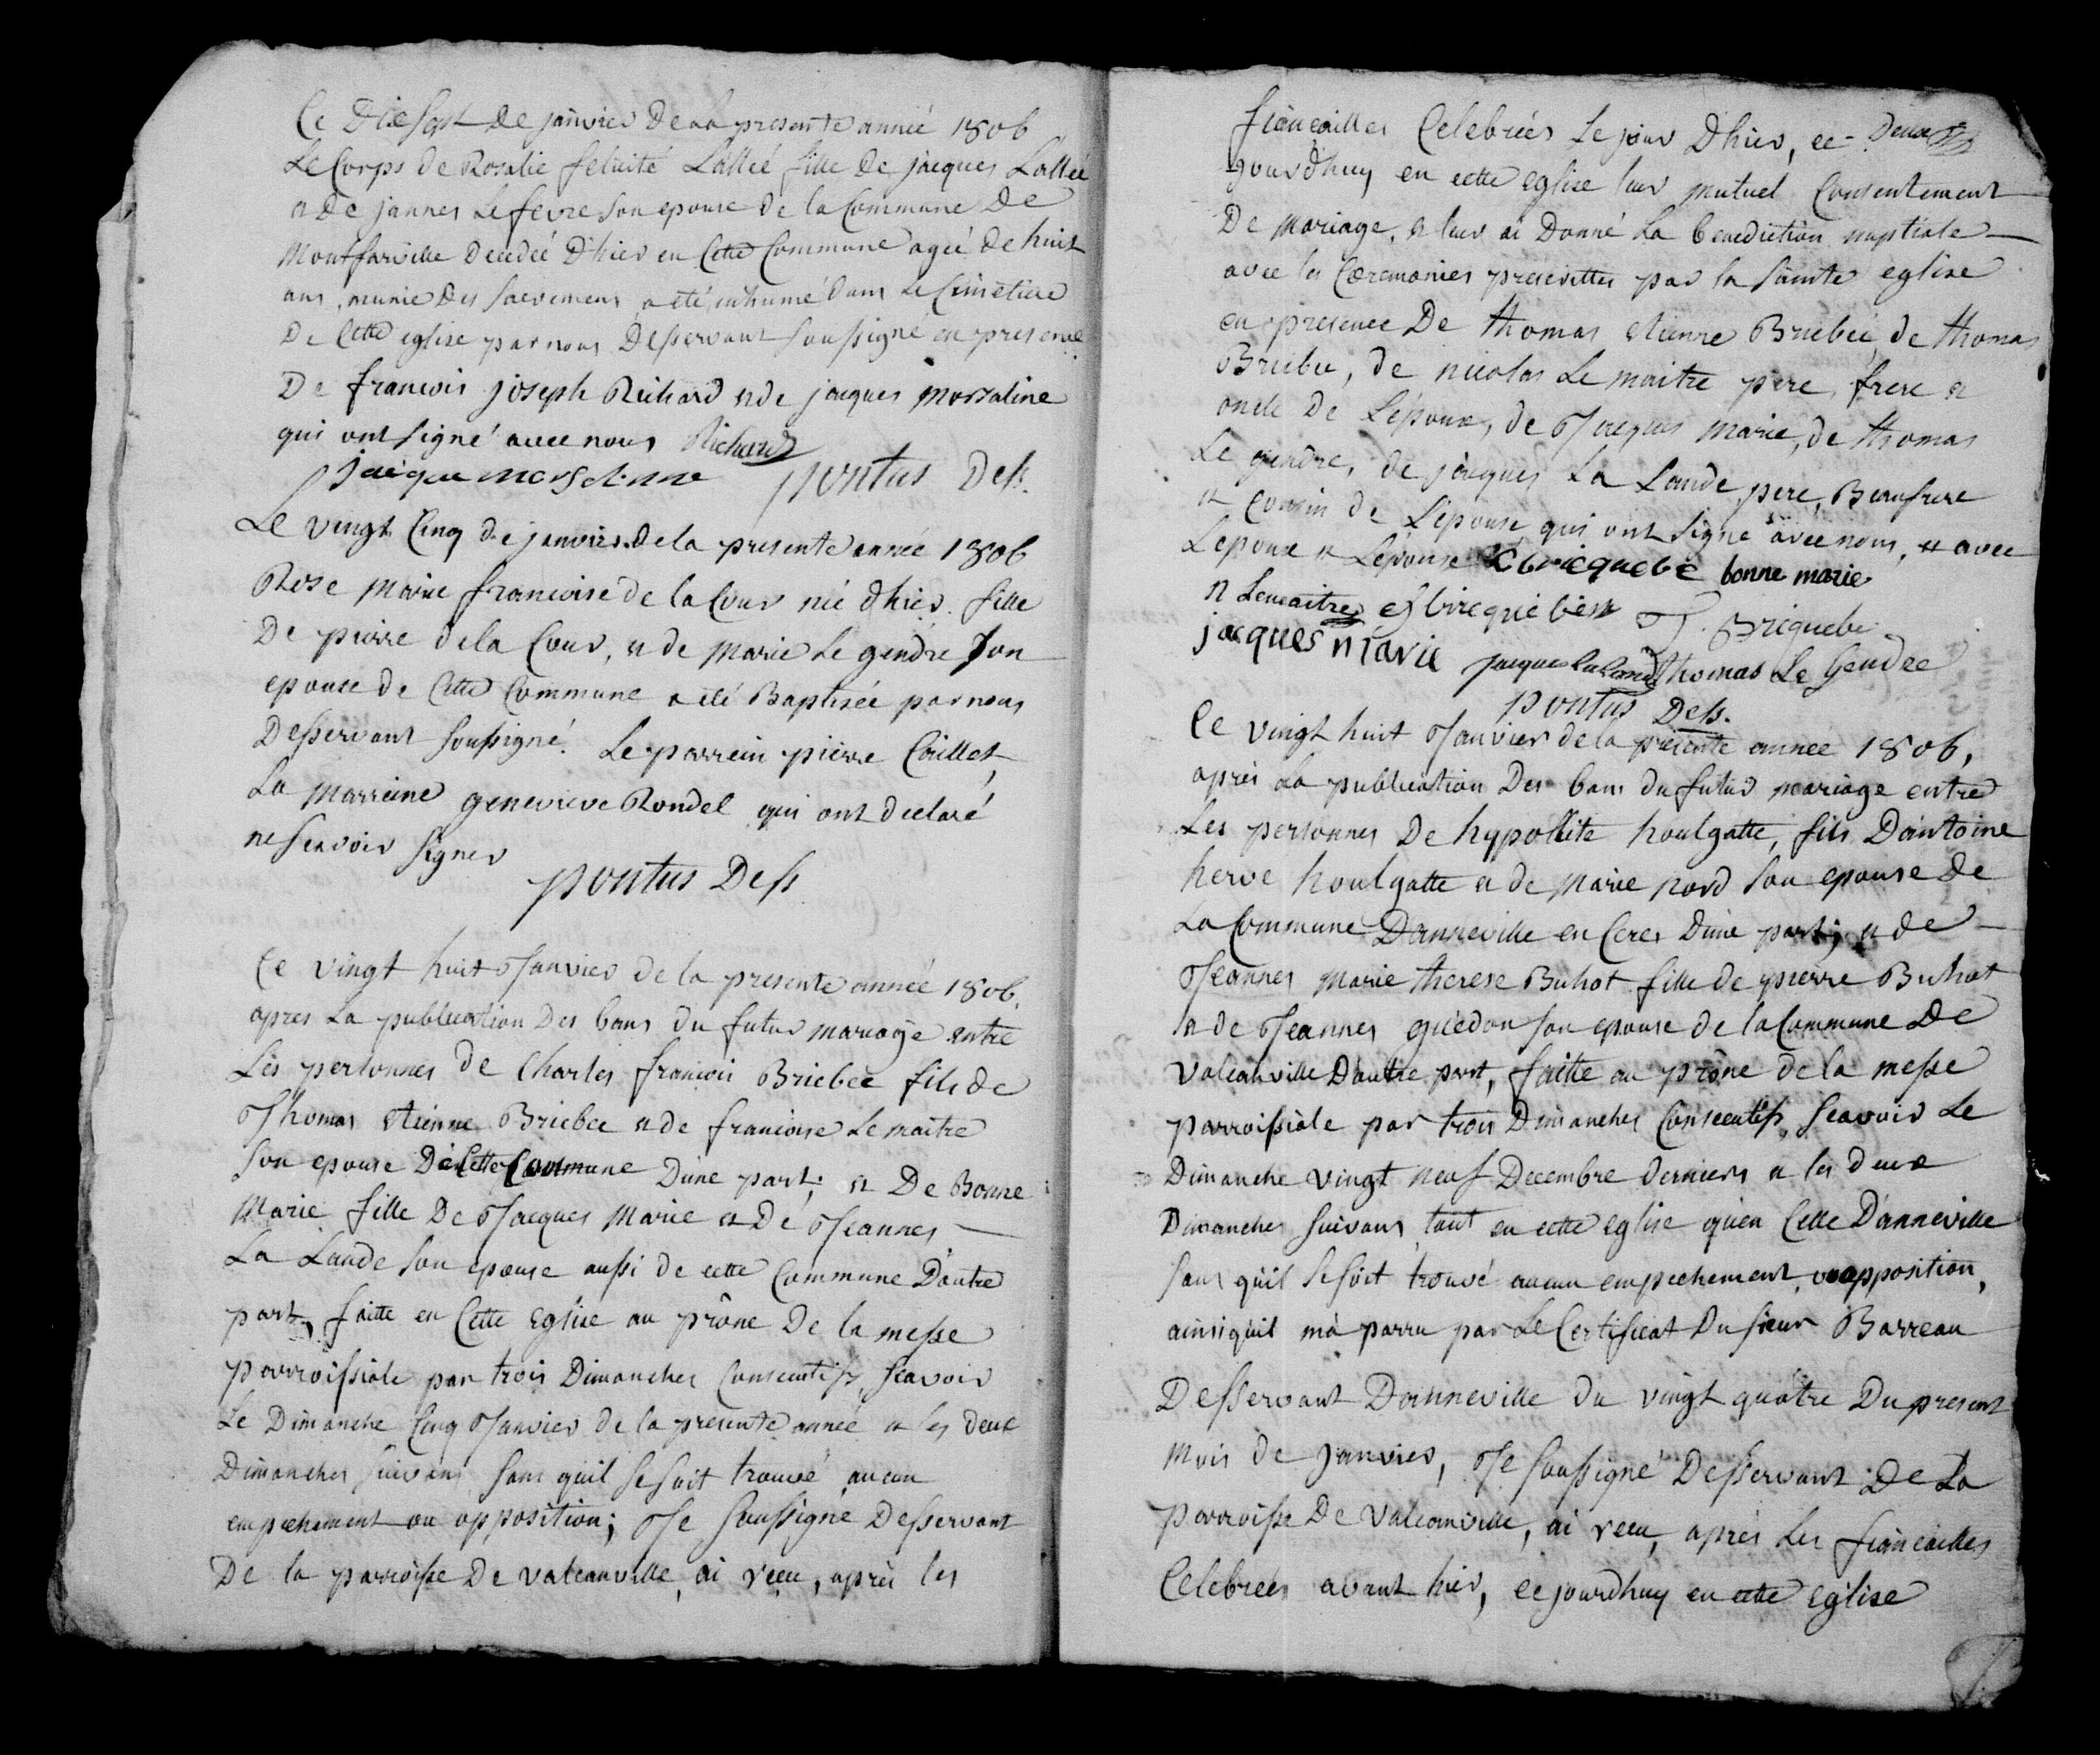 Ce Dixsept de janvier de la presente année 1806
Le Corps de Rosalie felicité Lallée fille de jacques Lallée
et De jannes Lefevre son epouse de la Commune De
Montfarville decedée D'hier en Cette Commune agée de huit
ans, munie Des sacremens, a été inhumé dans Le Cimetiere
De Cette eglise par nous Desservant soussigné en presence
De francois joseph Richard et de jacques Morsaline
qui ont signé avec nous Richard
jacque morsalinne pontus Dess.
Le vingt Cinq de janvier de la presente année 1806
Rose Marie francoise de la Cour née d'hier fille
De pierre de la Cour, et de Marie Le gendre son
epouse de Cette Commune a été Baptisée par nous
Desservant soussigné. Le parrein pierre Caillet
La Marreine genevieve Rondel qui ont declaré
ne scavoir signer
pontus Dess
Ce vingt huit Janvier de la presente année 1806.
apres La publication Des bans du futur mariage entre
Les personnes de Charles francois Bricbec fils de
Thomas etienne Bricbec et de francoise Le maitre
son epouse De Cette Commune D'une part; et De Bonne
Marie fille De Jacques Marie et De Jeannes
La Lande son epouse aussi de cette Commune D'autre
part, faitte en Cette Eglise au prône De la messe
parroissiale par trois Dimanches Consecutifs, scavoir
Le Dimanche Cinq Janvier de la presente année et les deux
Dimanches suivans sans qu'il se soit trouvé aucun
empechement ou opposition; Je soussigné Desservant
De la parroisse De valcanville, ai recu, après les
fiancailles Celebrées Le jour D'hier, ce Deux
jourd'huy en cette eglise leur mutuel Consentement
De Mariage, et leur ai Donné La benediction nuptiale
avec les Cæremonies prescrittes par la sainte eglise
en presence De thomas etienne Bricbec, de thomas
Bricbec, de nicolas Le maitre pere, frere et
oncle De L'epoux, de Jacques Marie, de thomas
Le gendre, de jacques La Lande pere, Beaufrere
et Cousin de L'epouse qui ont signé avec nous, et avec
L'epoux et L'epouse C bricquebé bonne marie
N Lemaitre bricquebé T. Bricquebe
jacques Marie jacques lalande thomas Le Gendre
pontus Dess.
Ce vingt huit Janvier de la presente année 1806,
après La publication Des bans du futur mariage entre
Les personnes De hypollite houlgatte, fils D'antoine
herve houlgatte et de Marie nord son epouse De
La Commune D'anneville en Ceres D'une part; et de
Jeannes Marie therese Buhot fille de pierre Buhot
et de Jeannes guedon son epouse de la Commune De
valcanville D'autre part, faitte au prône de la messe
parroissiale par trois Dimanches Consecutifs, scavoir Le
Dimanche vingt neuf Decembre derniers et les deux
Dimanches suivans, tant en cette eglise qu'en Celle D'anneville
sans qu'il se soit trouvé aucun empechement, ou opposition,
ainsi qu'il m'a parru par Le Certificat Du sieur Barreau
Desservant D'anneville du vingt quatre Du present
Mois de Janvier, Je soussigné Desservant De La
parroisse De valcanville, ai recu, après Les fiancailles
Celebrées avant hier, ce jourd'huy en cette Eglise